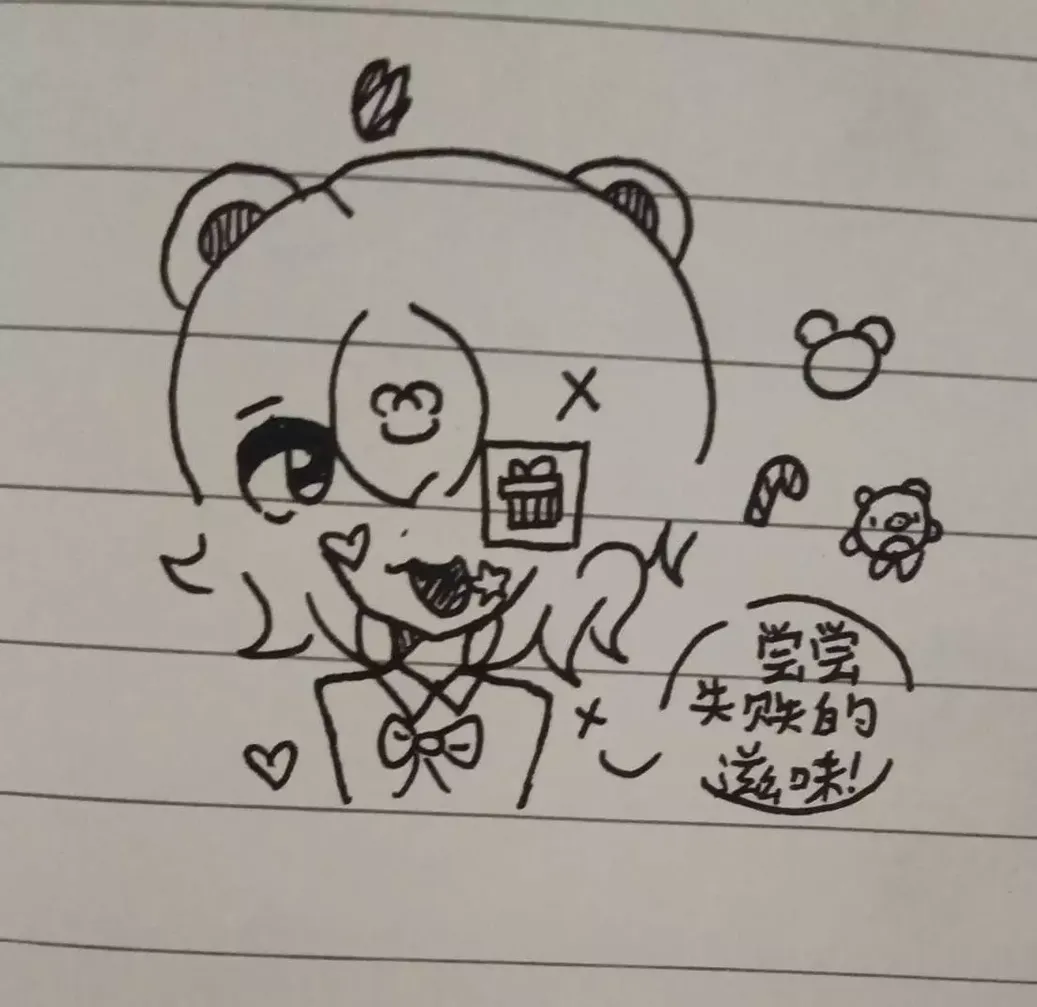 尝尝
失败的
滋味!